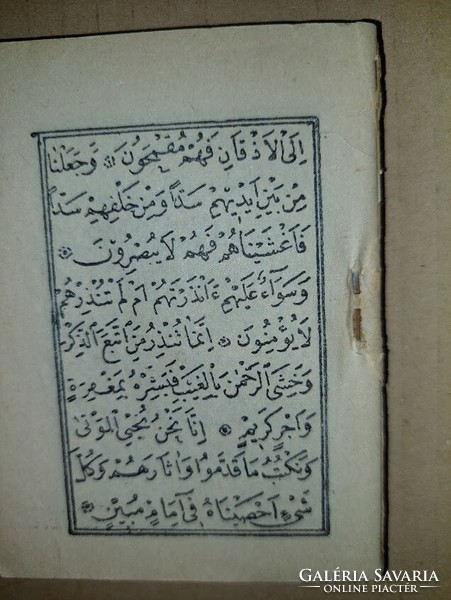 اِلَى الْاَذْقَانِ فَهُمْ مُقْمَحُونَ ۞ وَجَعَلْنَا
مِنْ بَيْنِ اَيْدِيهِمْ سَدًّا وَمِنْ خَلْفِهِمْ سَدًّا
فَاَغْشَيْنَاهُمْ فَهُمْ لَا يُبْصِرُونَ ۞
وَسَوَاءٌ عَلَيْهِمْ ءَاَنْذَرْتَهُمْ اَمْ لَمْ تُنْذِرْهُمْ
لَا يُؤْمِنُونَ ۞ اِنَّمَا تُنْذِرُ مَنِ اتَّبَعَ الذِّكْرَ
وَخَشِيَ الرَّحْمٰنَ بِالْغَيْبِ فَبَشِّرْهُ بِمَغْفِرَةٍ
وَاَجْرٍ كَرِيمٍ ۞ اِنَّا نَحْنُ نُحْيِي الْمَوْتٰى
وَنَكْتُبُ مَا قَدَّمُوا وَاٰثَارَهُمْ وَكُلَّ
شَيْءٍ اَحْصَيْنَاهُ فِي اِمَامٍ مُبِينٍ ۞
GALÉRIA SAVARIA
ONLINE PIACTÉR